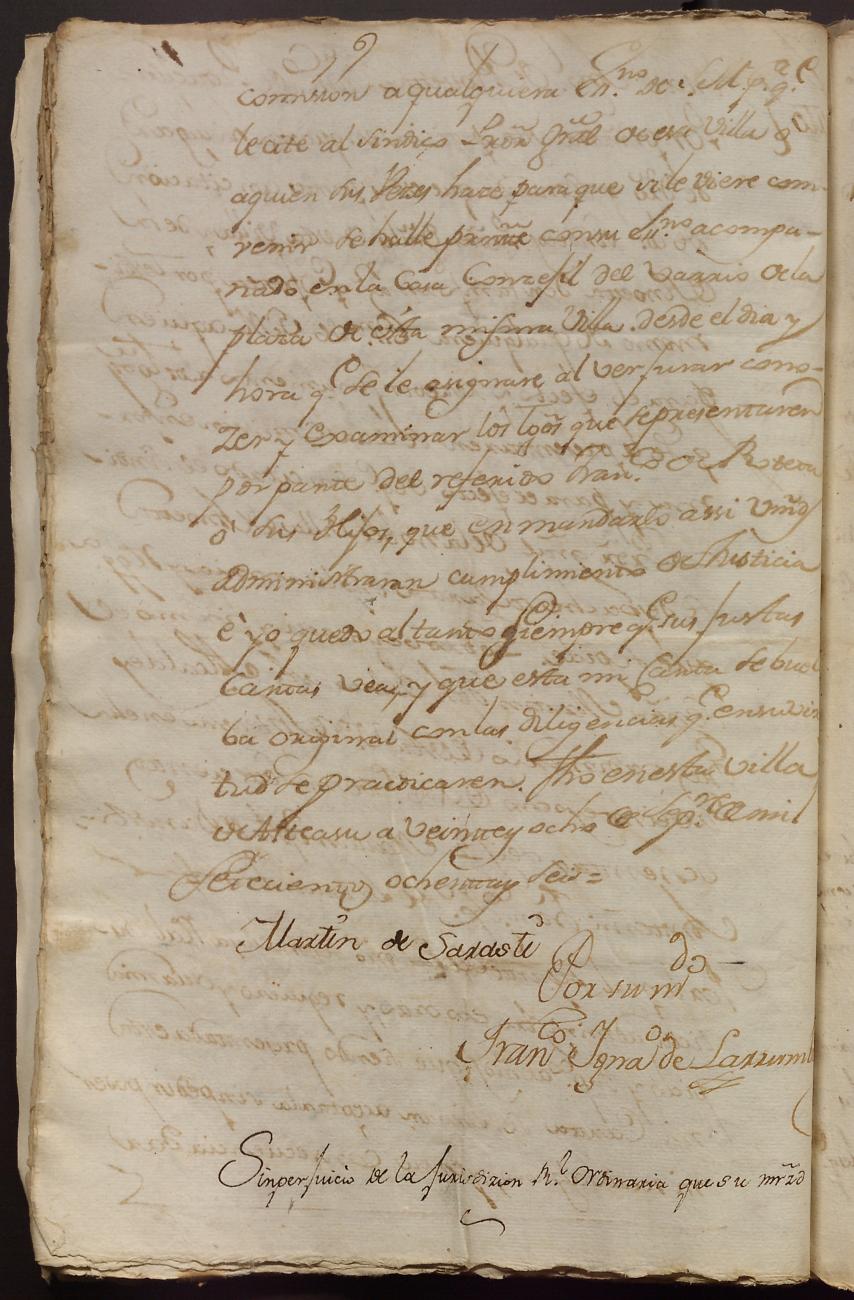 comission a qualquiera En.no de S. M. p.a q.e
le cite al sindico Pror Gral de esa Villa o
a quien sus vezes haze para que si le viere com-
venir se halle pressnte con su En.no acompa-
ñado, en la Cassa Conzejil del varrio de la
plaza de essa misma Villa desde el dia y
hora q.e se le asignare, al ver jurar cono-
zer y examinar los tgos que se presentaren
por parte del referido Fran.co de Roteta
o sus Hijos, que en mandarlo assi Vmds
administraran cumplimiento de Justicia
e yo quedo al tanto siempre q.e sus justas
Cartas vea, y que esta mi Carta se buel
ba original con las diligencias q.e en su vir
tud se practicaren. fho en esta Villa
de Asteasu a veinte y ocho de Sep.re de mil
Seiscientos ochenta y seis =
Martin de Sarasti
Por su md.do
Fran.co Igna.o de Larrum
Sin perjuicio de la Jurisdizion R.l Ordinaria que su mrzd